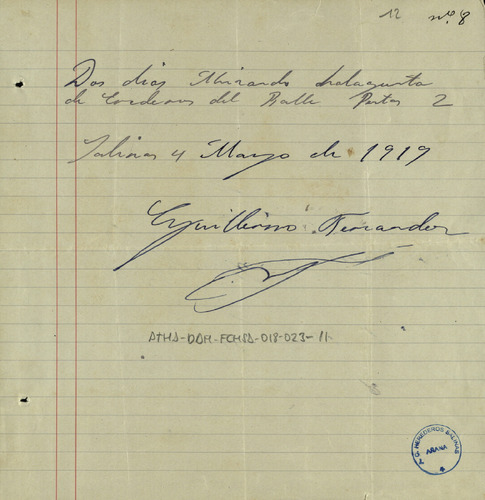 12 nº 8
Dos dias Mirando
de Corderos del Balle Pstas 2
Salinas 4 Mayo de 1919
Guillermo Fernandez
ATHA-DAH-FCHSA-018-023-11
T. G. HEREDEROS SALINAS
AÑANA